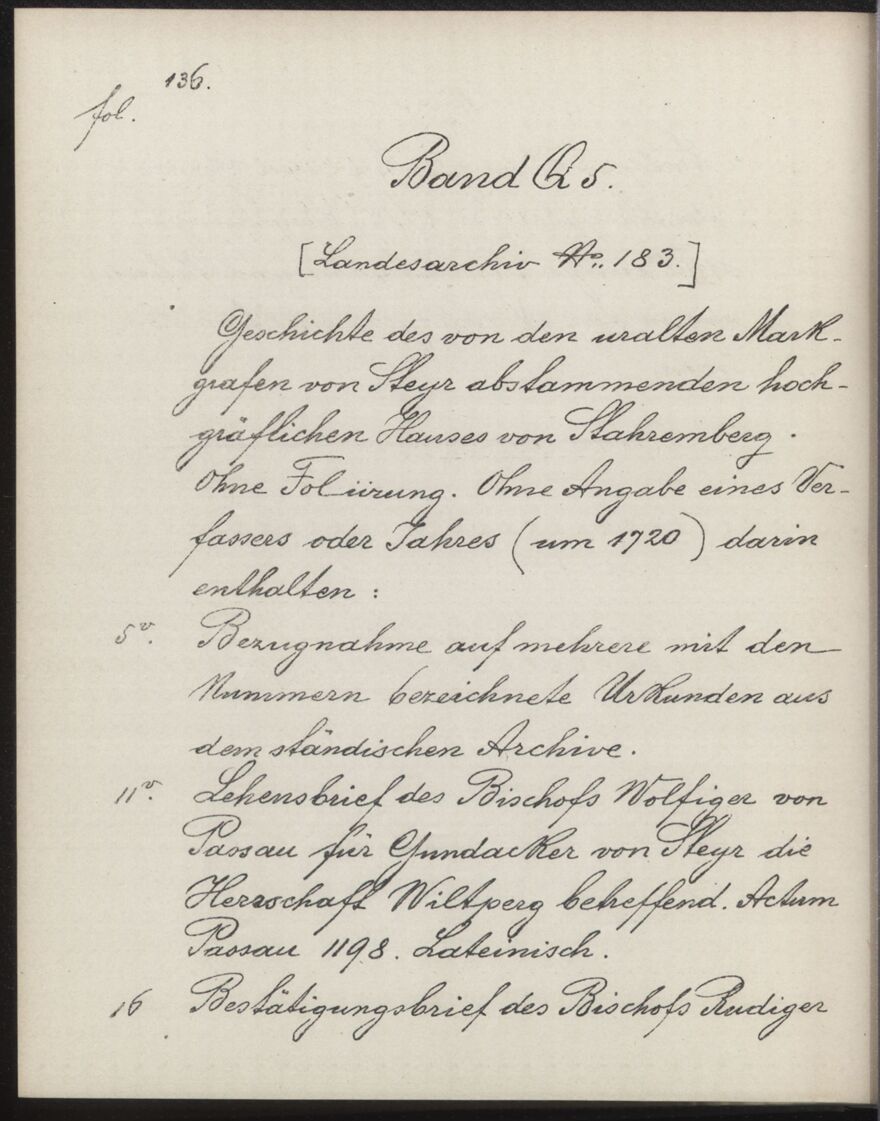 136.
fol.
Band Q 5.
[Landesarchiv No. 183.]
Geschichte des von den uralten Mark-
grafen von Steyr abstammenden hoch-
gräflichen Hauses von Stahremberg.
Ohne Foliirung. Ohne Angabe eines Ver-
fassers oder Jahres (um 1720) darin
enthalten:
5v. Bezugnahme auf mehrere mit den
Nummern bezeichnete Urkunden aus
dem ständischen Archive.
11v. Lehensbrief des Bischofs Wolfiger von
Passau für Gundacker von Steyr die
Herrschaft Wiltperg betreffend. Actum
Passau 1198. Lateinisch.
16 Bestätigungsbrief des Bischofs Rudiger